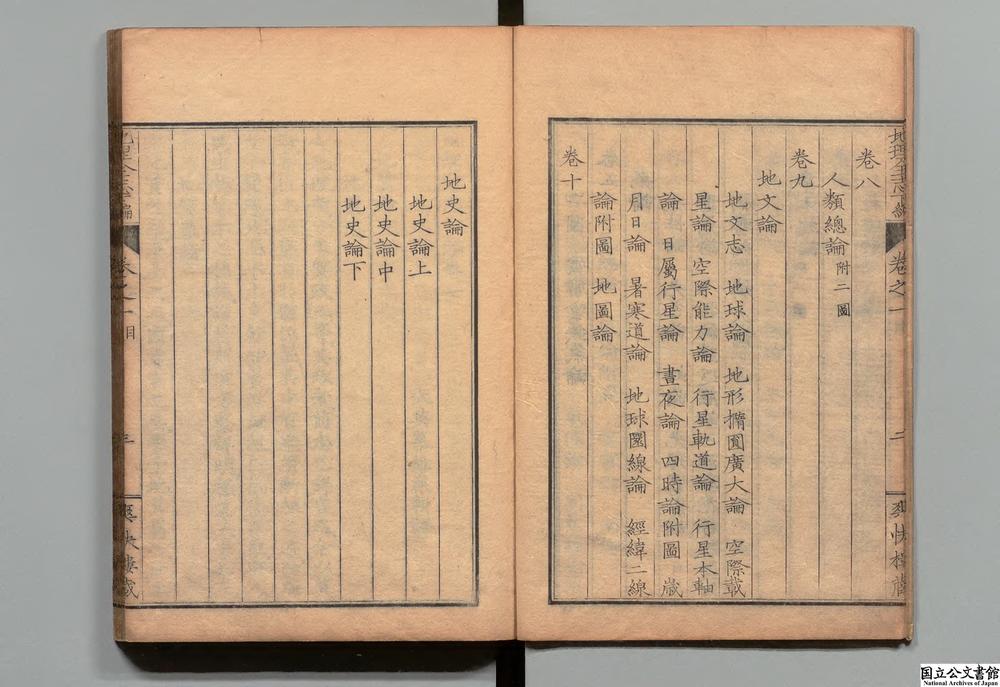 地理全志下編 卷之一 二 爽快樓藏
卷八
人類總論附二圖
卷九
地文論
地文志 地球論 地形撱圓廣大論 空際載
星論 空際能力論 行星軌道論 行星本軸
論 日屬行星論 晝夜論 四時論附圖 歲
月日論 暑寒道論 地球圜線論 經緯二線
論附圖 地圖論
卷十
地史論
地史論上
地史論中
地史論下
編 卷之一 目 三 爽快樓藏
国立公文書館
National Archives of Japan